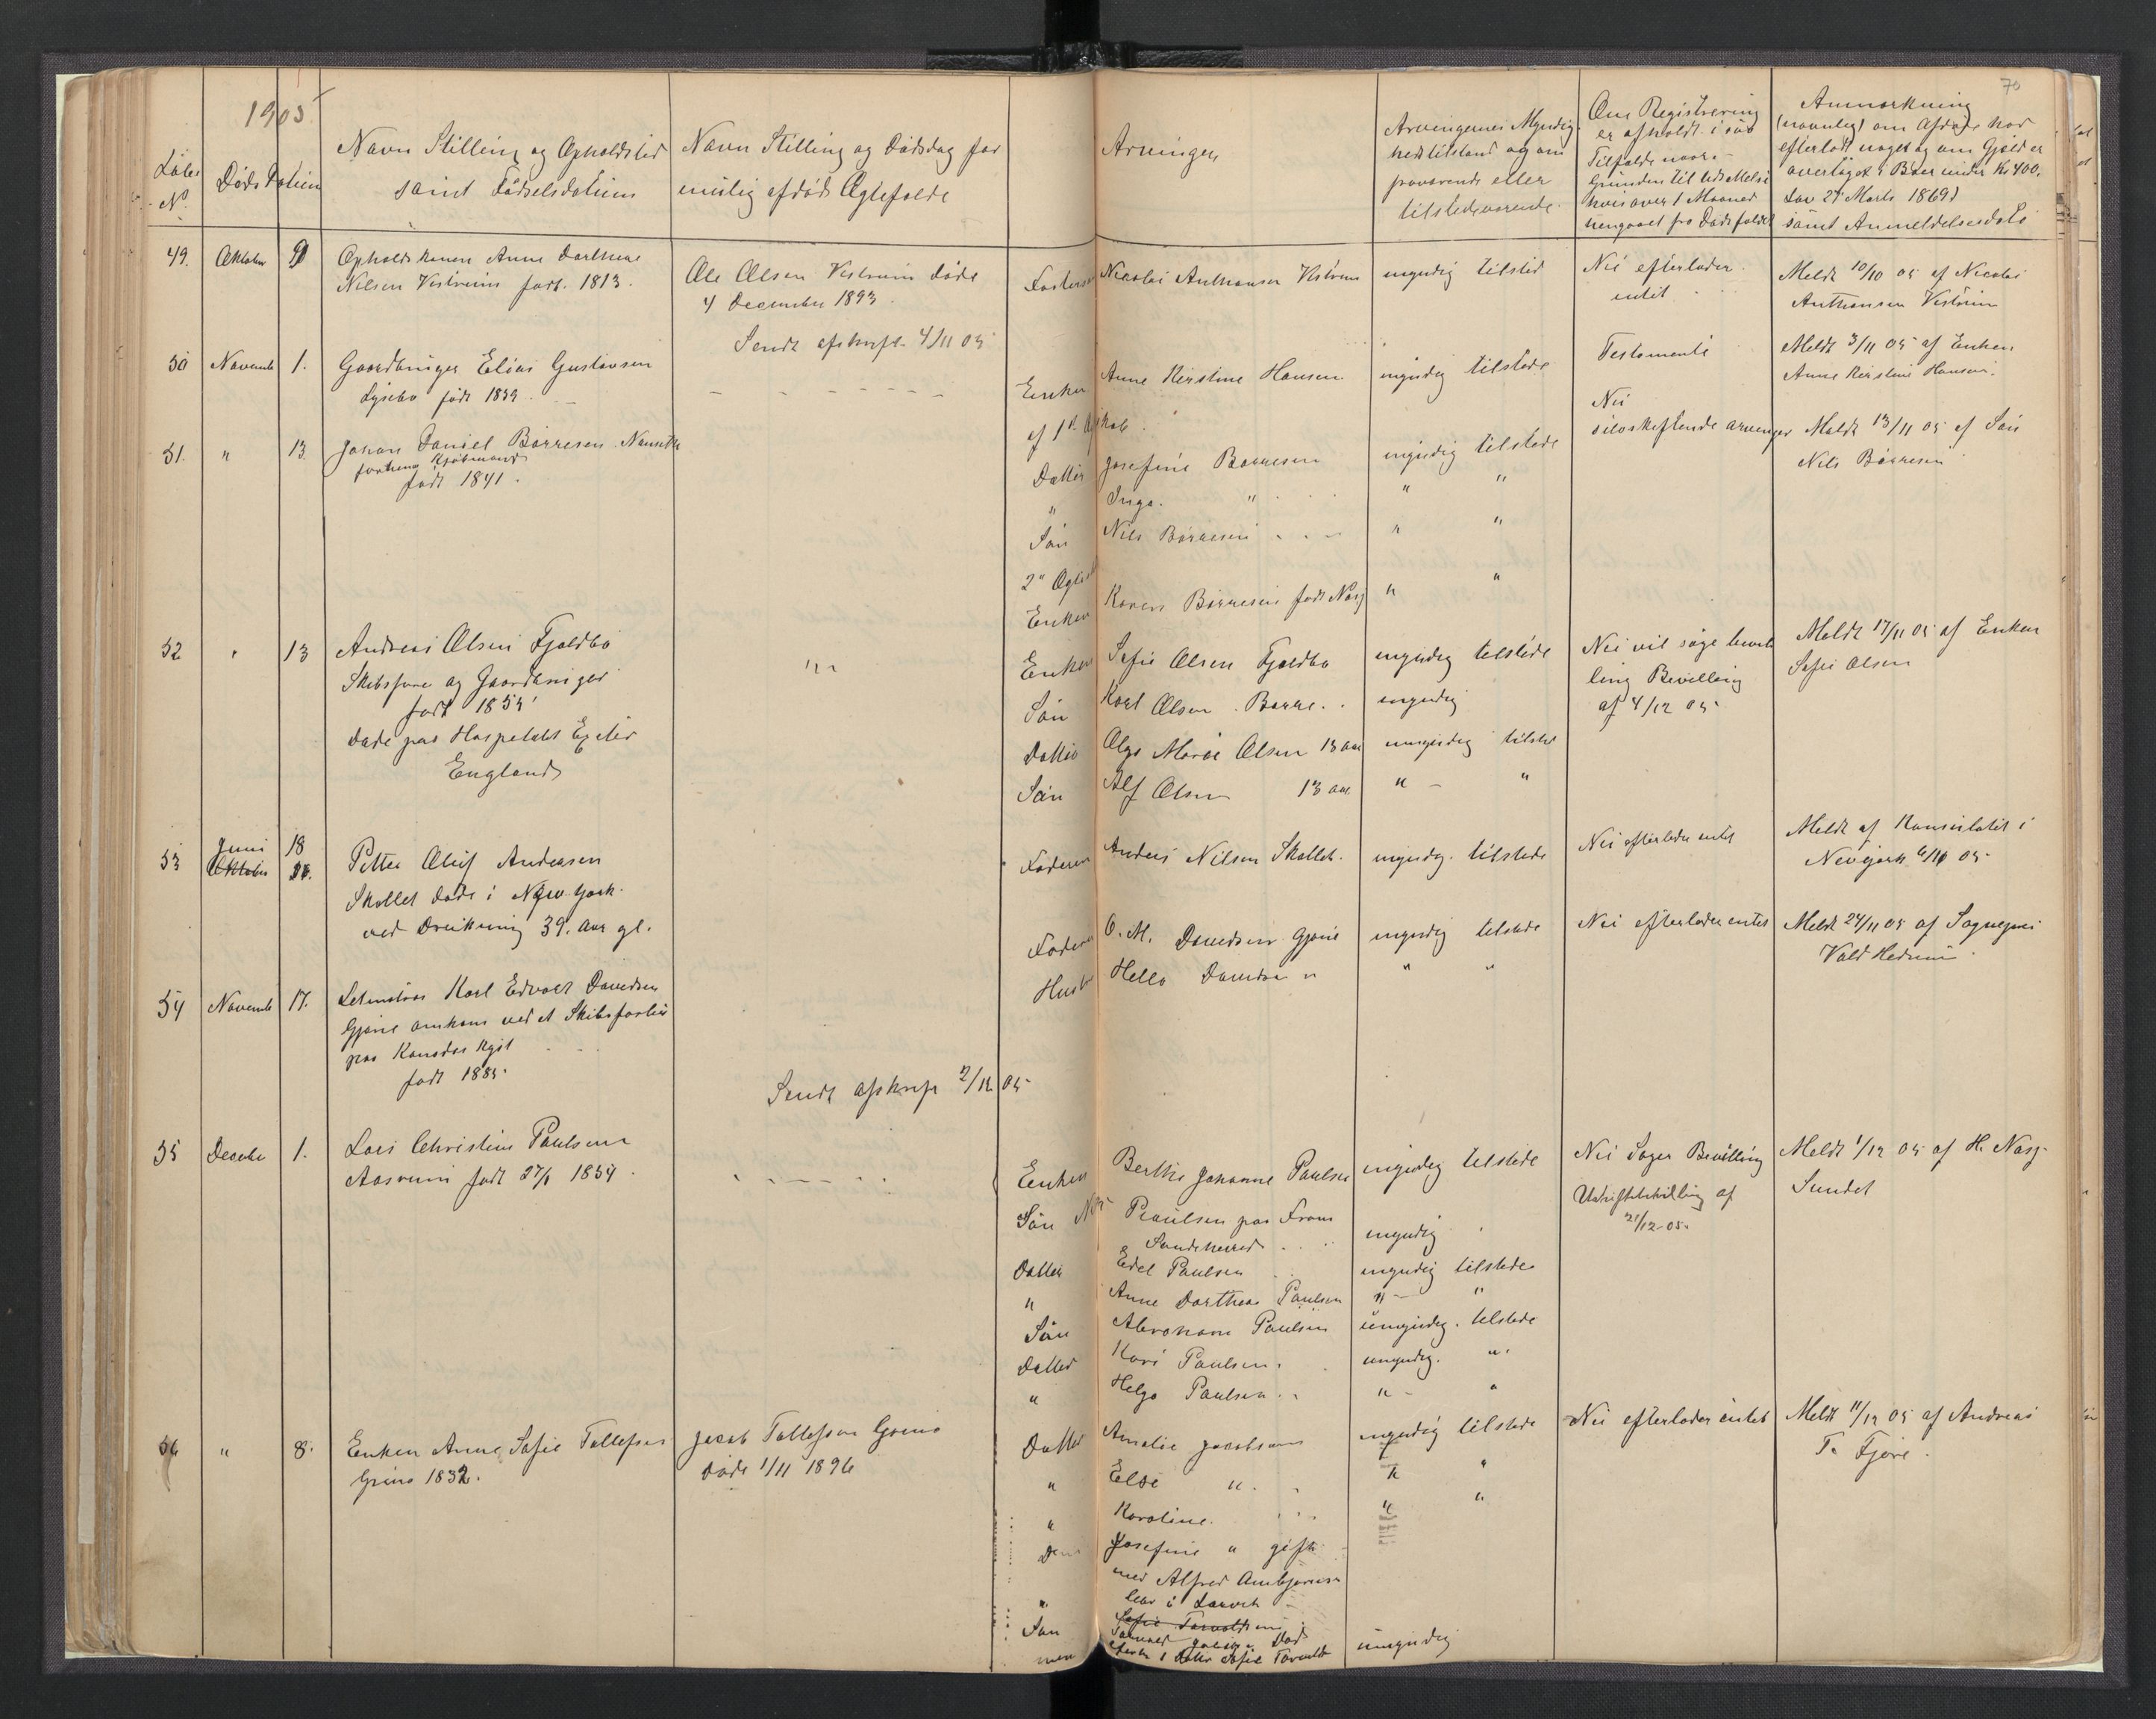 1905
70
Löbe
No.
Döds Datum
Navn Stilling og Opholdsted
samt Födselsdatum
Navn Stilling og Dödsdag for
mulig afdöd Ægtefælde
Arvinger
Arvingernes Myndig-
hedstilstand og om
fraværende eller
tilstedeværende.
Om Registrering
er afholdt i saa
Tilfælde naar -
Grunden til Udsættelse
hvis over 1 Maaned
hengaaet fra Dödsfaldet
Anmærkning
(navnlig) om Afdöde har
efterladt noget og om Gjeld er
overtaget i Boer under Kr 400.
Lov 27 Marts 1869)
samt Anmeldelsesdato
49. Oktober 9
Opholdskonen Anne Dorthea
Nilsen Vestrum födt. 1813.
Ole Olsen Vestrum döde
4 December 1893.
Fostersön Nicolai Anthonsen Vestrum
myndig tilsted
Nei efterlader
intet
Meldt 10/10 05 af Nicolai
Anthonsen Vestrum
Sendt afskrift 4/11 05
50 Novemb 1.
Gaardbruger Elias Gustavsen
Lysebo födt 1839.
Enken Anne Kirstine Hansen
myndig tilstede
Testamente
Meldt 3/11 05 af Enken
Anne Kirstine Hansen.
51. " 13.
Johan Daniel Börresen
forhenv Kjöbmand
födt 1841.
af 1st Ægteskab.
Datter Josefine Börresen
myndig tilstede
Nei
selvskiftende arvinger
Meldt 13/11 05 af Sön
Nils Börresen
" Inga. "
" "
Sön Nils Börresen
" "
2" Ægtes
Enken Karen Börresen födt Næsj
" "
52 " 13
Andreas Olsen Fjeldbo
Skibsförer og Gaardbruger
födt 1855
döde paa Hospitalet Exeter
England
" "
Enken Sofie Olsen Fjeldbo
myndig tilstede
Nei vil söge
Bevilling
af 4/12 05
Meldt 17/11 05 af Enken
Sofie Olsen
Sön Karl Olsen Borre.
myndig
Datter Olga Marie Olsen 18 aar
umyndig tilsted
Sön Alf Olsen 13 aar
" "
53 Juni 18
Oktober
Petter Oluf Andersen
Skallet döde i New-York
ved Drukning 39. aar gl.
Faderen Anders Nilsen Skallet.
myndig. tilstede
Nei efterlader intet
Meldt af Konsulatet i
Newyork 6/11 05
54 Novemb 17.
Letmatros Karl Edvart Davidsen
Gjöne omkom ved et Skibsforlis
paa Kanadas Kyst
födt 1885.
Faderen O. M. Davidsen Gjöne
myndig tilstede
Nei efterlader intet
Meldt 24/11 05 af Sognepr
Vald Hedrum
Hustru Hella Davidsen "
" "
Sendt afskrift 2/12 05
55 Decebe 1.
Lars Christian Paulsen
Aasrum födt 27/1 1854.
Enken Berthe Johanne Paulsen
myndig tilstede
Nei Söger Bevilling
Uskiftebevilling af
21/12-05.
Meldt 1/12 05 af H. Næsj-
Sundet
Sön Paulsen paa Fram
Sandeherred
myndig
Datter Edel Paulsen
myndig tilstede
" Anne Dorthea Paulsen
" "
Sön Abraham Paulsen
umyndig. tilstede
Datter Kari Paulsen.
umyndig. "
" Helga Paulsen.
" "
56 " 8.
Enken Anne Sofie Tollefsen
Grino 1832.
Jacob Tollefsen Grino
döde 1/11 1896
Datter Amalie Jacobsen
myndig tilstede
Nei efterlader intet
Meldt 11/12 05 af Andreas
T. Fjöre.
" Else "
" "
" Karoline.
" "
Josefine " gift
med Alfred Ambjörnsen
bor i Larvik
Sön
Sofie Torvaldsen
Torvald Jacobsen Död
efterl 1 datter Sofie Torvalds
umyndig